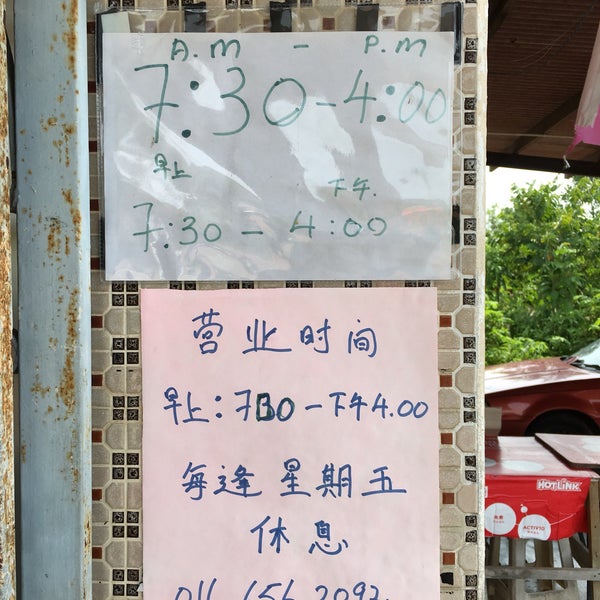 A.M - P.M
7:30 - 4:00
早上 下午.
7:30 - 4:00
营业时间
早上: 730 - 下午4.00
每逢星期五
休息
HOTLINK
ACTIV10